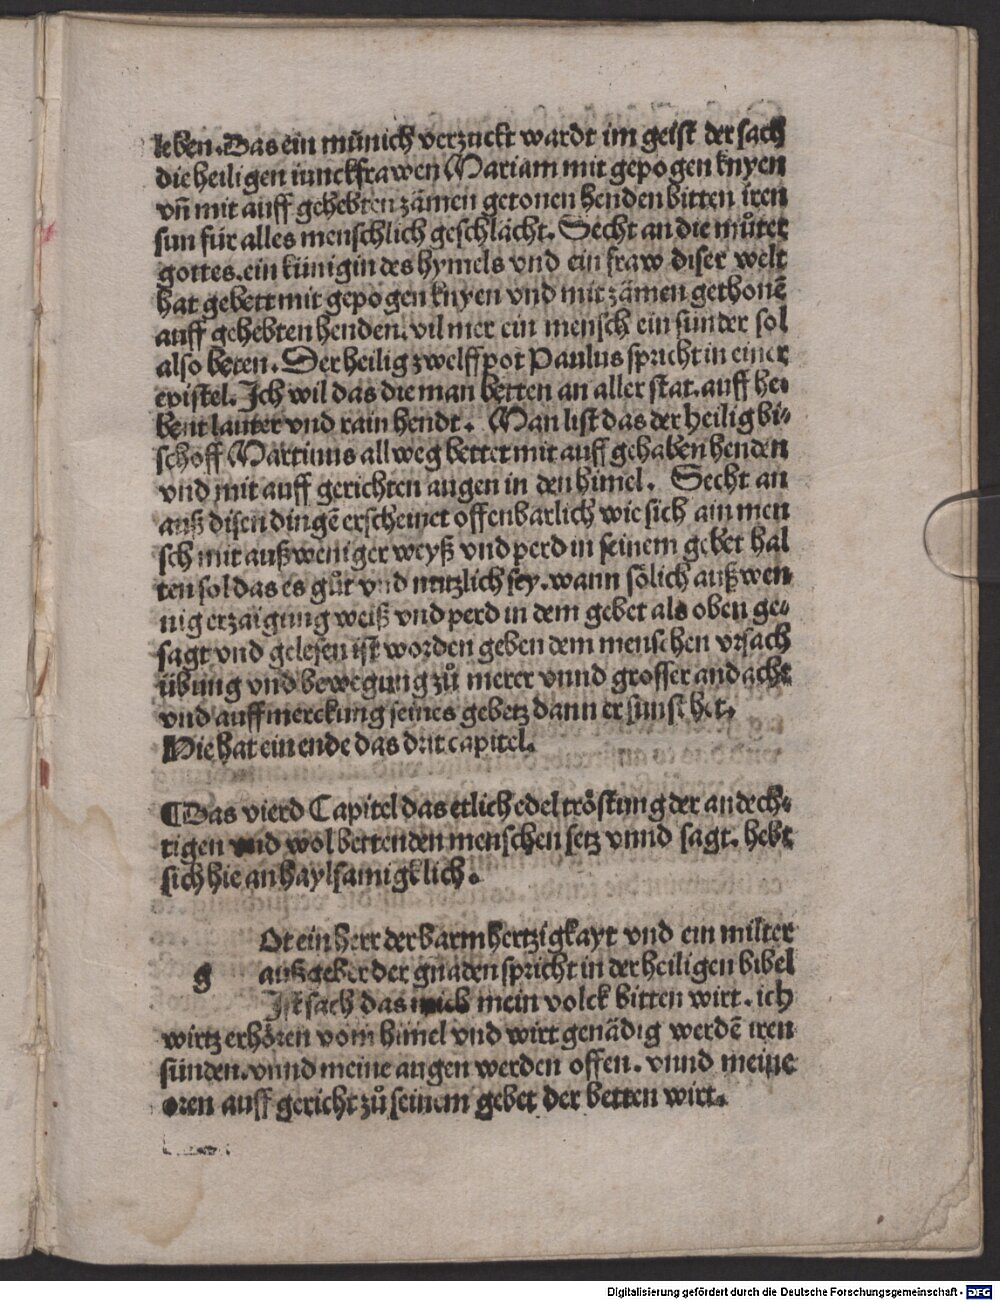 leben. Das ein münich verzuckt wardt im geist der sach
die heiligen iunckfrawen Mariam mit gepogen knyen
vñ mit auff gehebten zämen getonen henden bitten iren
sun für alles menschlich geschlächt. Secht an die můter
gottes. ein künigin des hymels vnd ein fraw diser welt
hat gebett mit gepogen knyen vnd mit zämen gethonē
auff gehebten henden. vil mer ein mensch ein sünder sol
also beten. Der heilig zwelffpot Paulus spricht in einer
epistel. Ich wil das die man betten an aller stat. auff he⸗
bent lauter vnd rain hendt. Man list das der heilig bi⸗
schoff Martinus allweg bettet mit auff gehaben henden
vnd mit auff gerichten augen in den himel. Secht an
auß disen dingē erscheinet offenbarlich wie sich ain men
sch mit außweniger weyß vnd perd in seinem gebet hal
ten sol das es gůt vnd nutzlich sey. wann sölich außwen⸗
nig erzaigung weiß vnd perd in dem gebet als oben ge⸗
sagt vnd gelesen ist worden geben dem menschen vrsach
übung vnd bewegung zů merer vnnd grosser andacht
vnd auffmerckung seines gebetz dann er sunst het.
Hie hat ein ende das drit capitel.
¶Das vierd Capitel das etlich edel tröstung der andech⸗
tigen vnd wol bettenden menschen setz vnnd sagt. hebt
sich hie an haylsamigklich.
g Ot ein herr der barmhertzigkayt vnd ein milter
außgeber der gnaden spricht in der heiligen bibel
Ist sach das mich mein volck bitten wirt. ich
wirtz erhören vom himel vnd wirt genädig werdē iren
sünden. vnnd meine augen werden offen. vnnd meine
oren auff gericht zů seinem gebet der betten wirt.
Digitalisierung gefördert durch die Deutsche Forschungsgemeinschaft - DFG